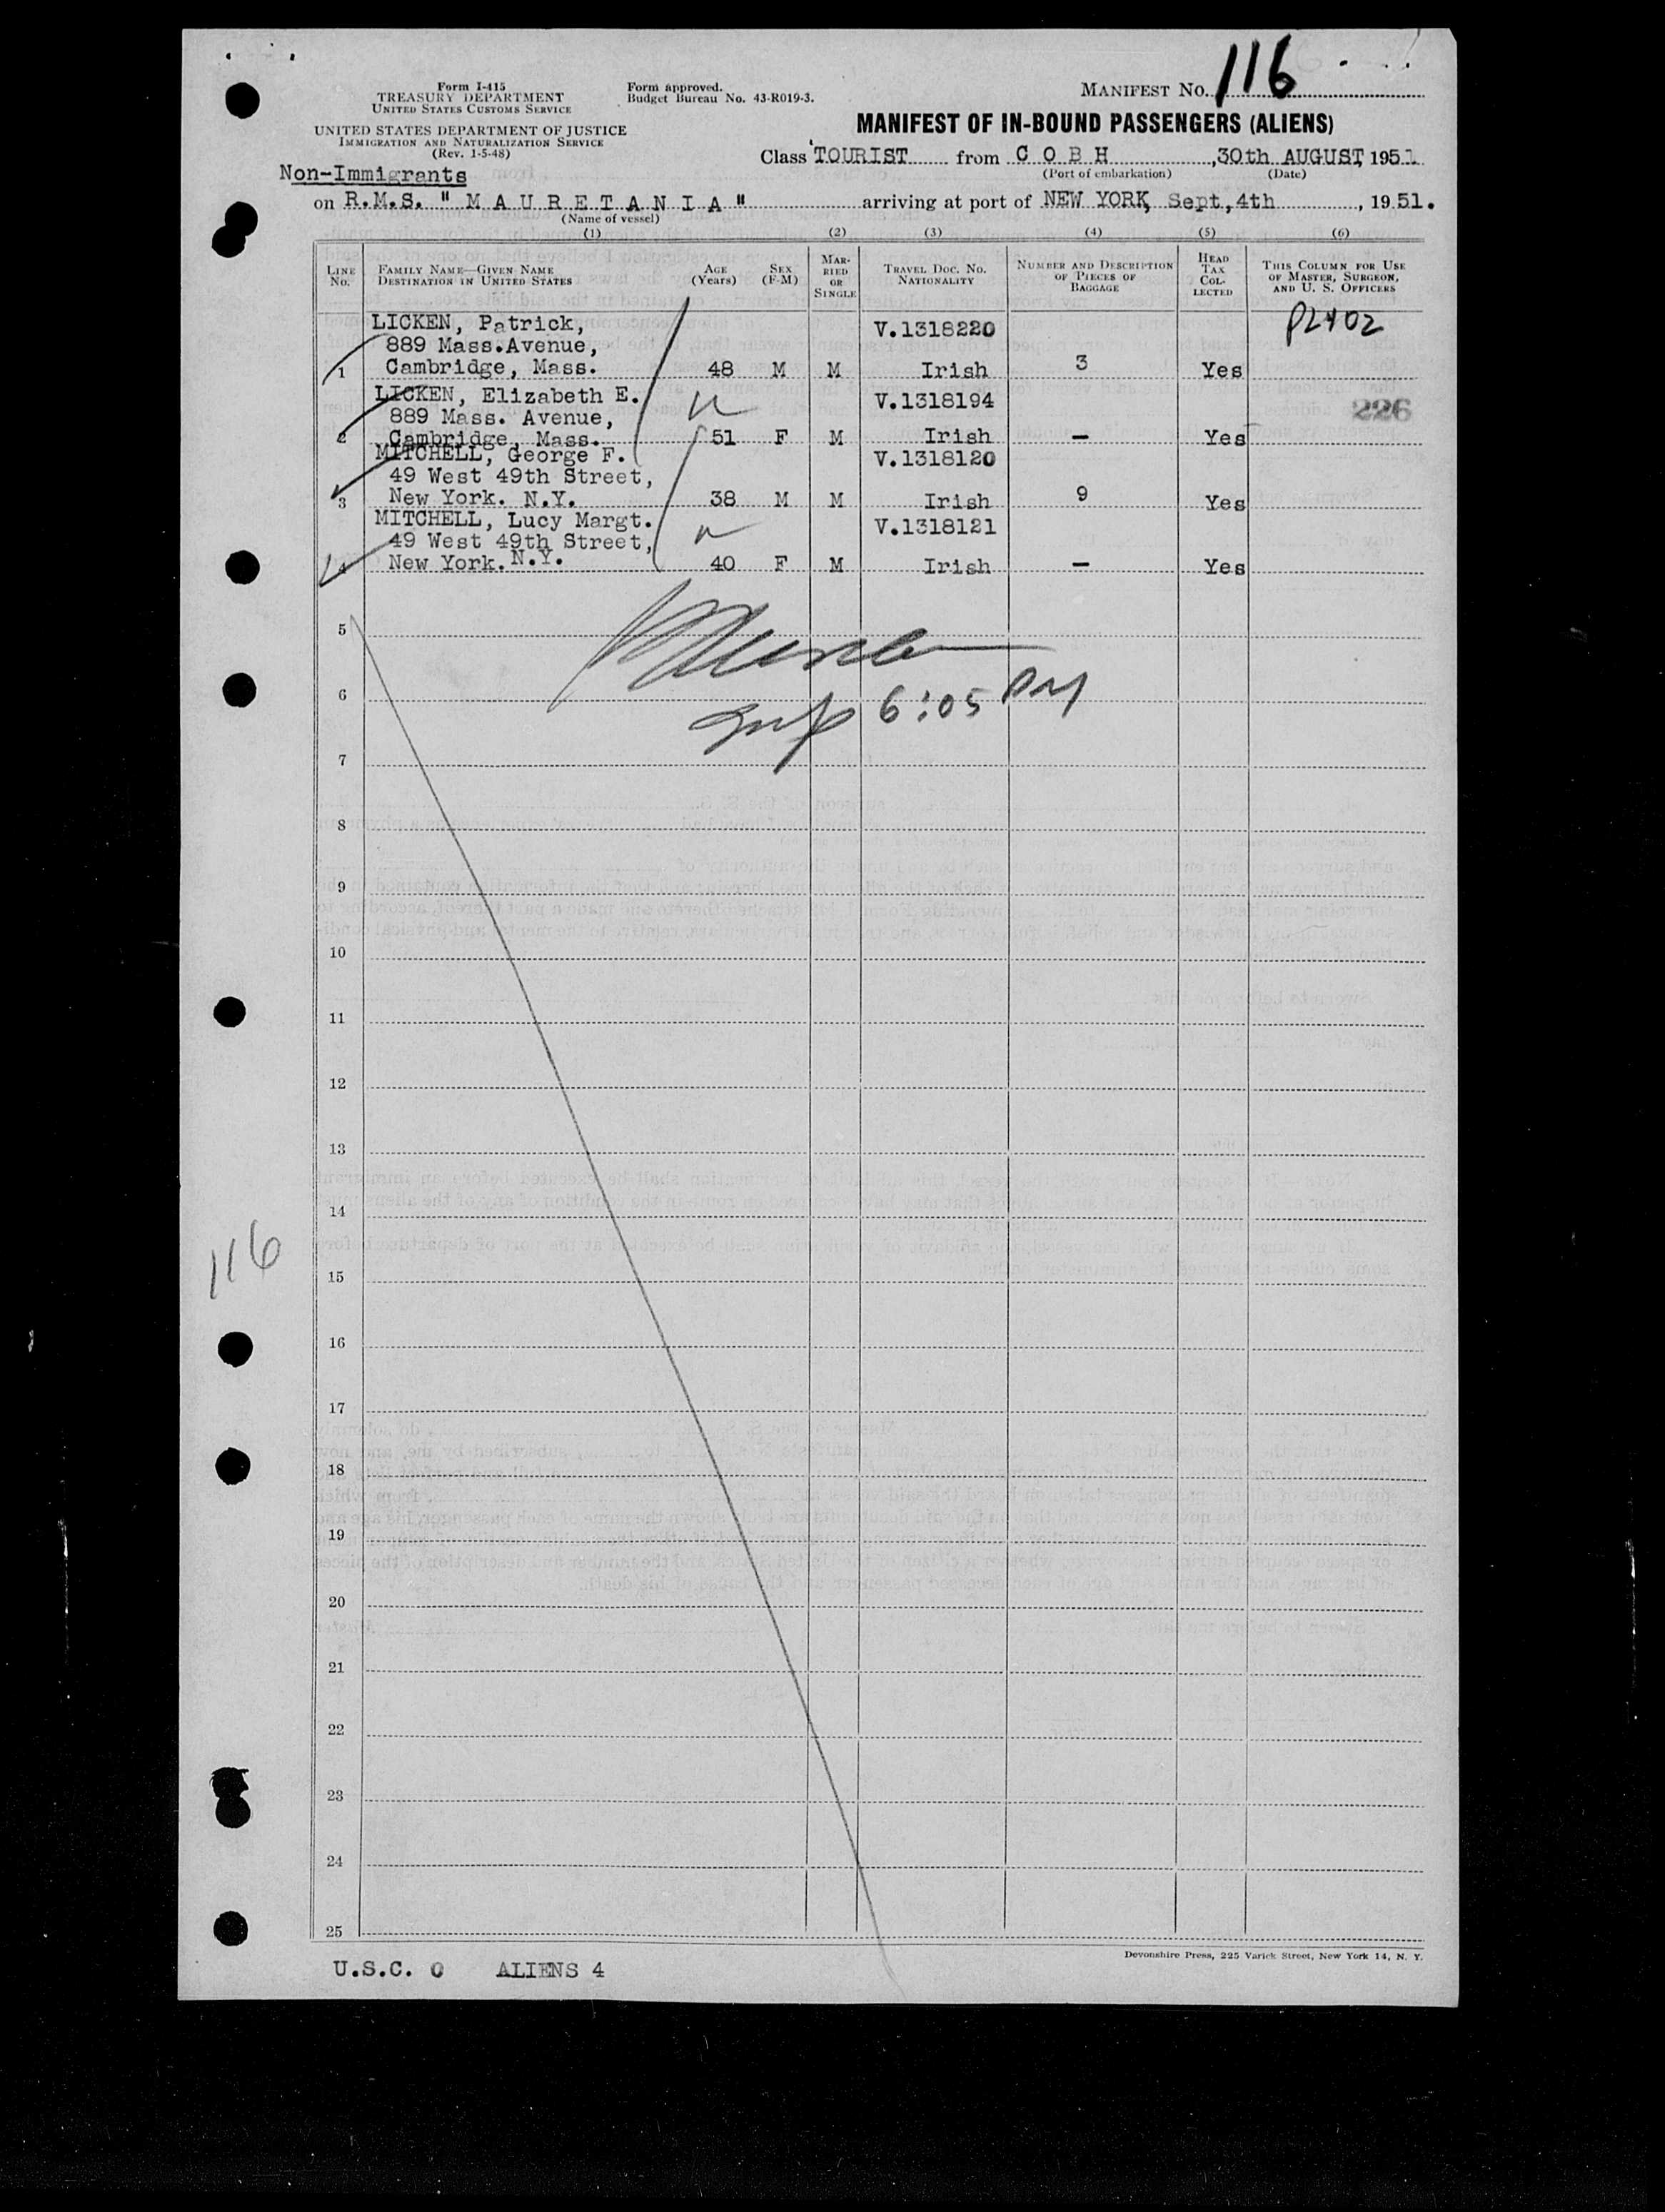 Form I-415
TREASURY DEPARTMENT
UNITED STATES CUSTOMS SERVICE
UNITED STATES DEPARTMENT OF JUSTICE
IMMIGRATION AND NATURALIZATION SERVICE
(Rev. 1-5-48)
Form approved.
Budget Bureau No. 43-R019-3.
MANIFEST No. 116
MANIFEST OF IN-BOUND PASSENGERS (ALIENS)
Class TOURIST from C O B H, 30th AUGUST, 1951
(Port of embarkation) (Date)
Non-Immigrants
on R.M.S. " M A U R E T A N I A " arriving at port of NEW YORK, Sept, 4th, 1951.
(Name of vessel)
(1) (2) (3) (4) (5) (6)
LINE No. FAMILY NAME—GIVEN NAME DESTINATION IN UNITED STATES AGE (Years) SEX (F-M) MARRIED OR SINGLE TRAVEL DOC. NO. NATIONALITY NUMBER AND DESCRIPTION OF PIECES OF BAGGAGE HEAD TAX COLLECTED THIS COLUMN FOR USE OF MASTER, SURGEON, AND U. S. OFFICERS
LICKEN, Patrick, V.1318220 P2402
889 Mass.Avenue,
1 Cambridge, Mass. 48 M M Irish 3 Yes
LICKEN, Elizabeth E. V.1318194
889 Mass. Avenue, 226
2 Cambridge, Mass. 51 F M Irish — Yes
MITCHELL, George F. V.1318120
49 West 49th Street,
3 New York. N.Y. 38 M M Irish 9 Yes
MITCHELL, Lucy Margt. V.1318121
49 West 49th Street,
4 New York. N.Y. 40 F M Irish — Yes
5
6
6:05 PM
7
8
9
10
11
12
13
14
116
15
16
17
18
19
20
21
22
23
24
25
Devonshire Press, 225 Varick Street, New York 14, N. Y.
U.S.C. 0 ALIENS 4